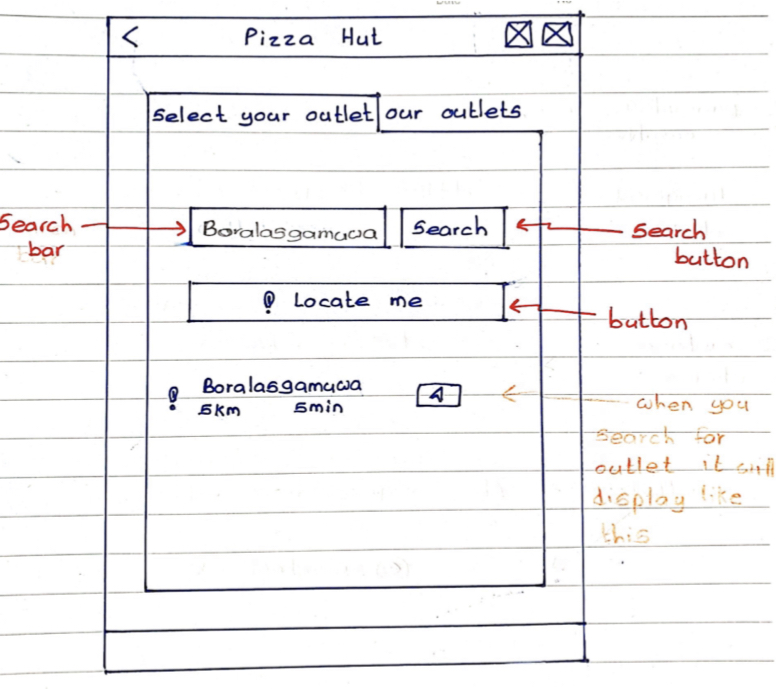 < Pizza Hut
Select your outlet our outlets
Search bar
Boralasgamuwa Search
Search button
Locate me
button
Boralasgamuwa
5km 5min
when you
search for
outlet it will
display like
this